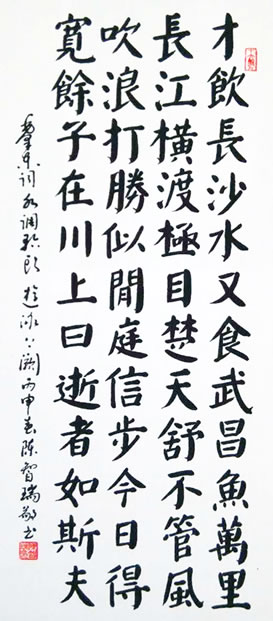 才飲長沙水又食武昌魚萬里
長江橫渡極目楚天舒不管風
吹浪打勝似閒庭信步今日得
寬餘子在川上曰逝者如斯夫
毛泽东词水调歌头游泳上阕丙申春陈智瑞敬书